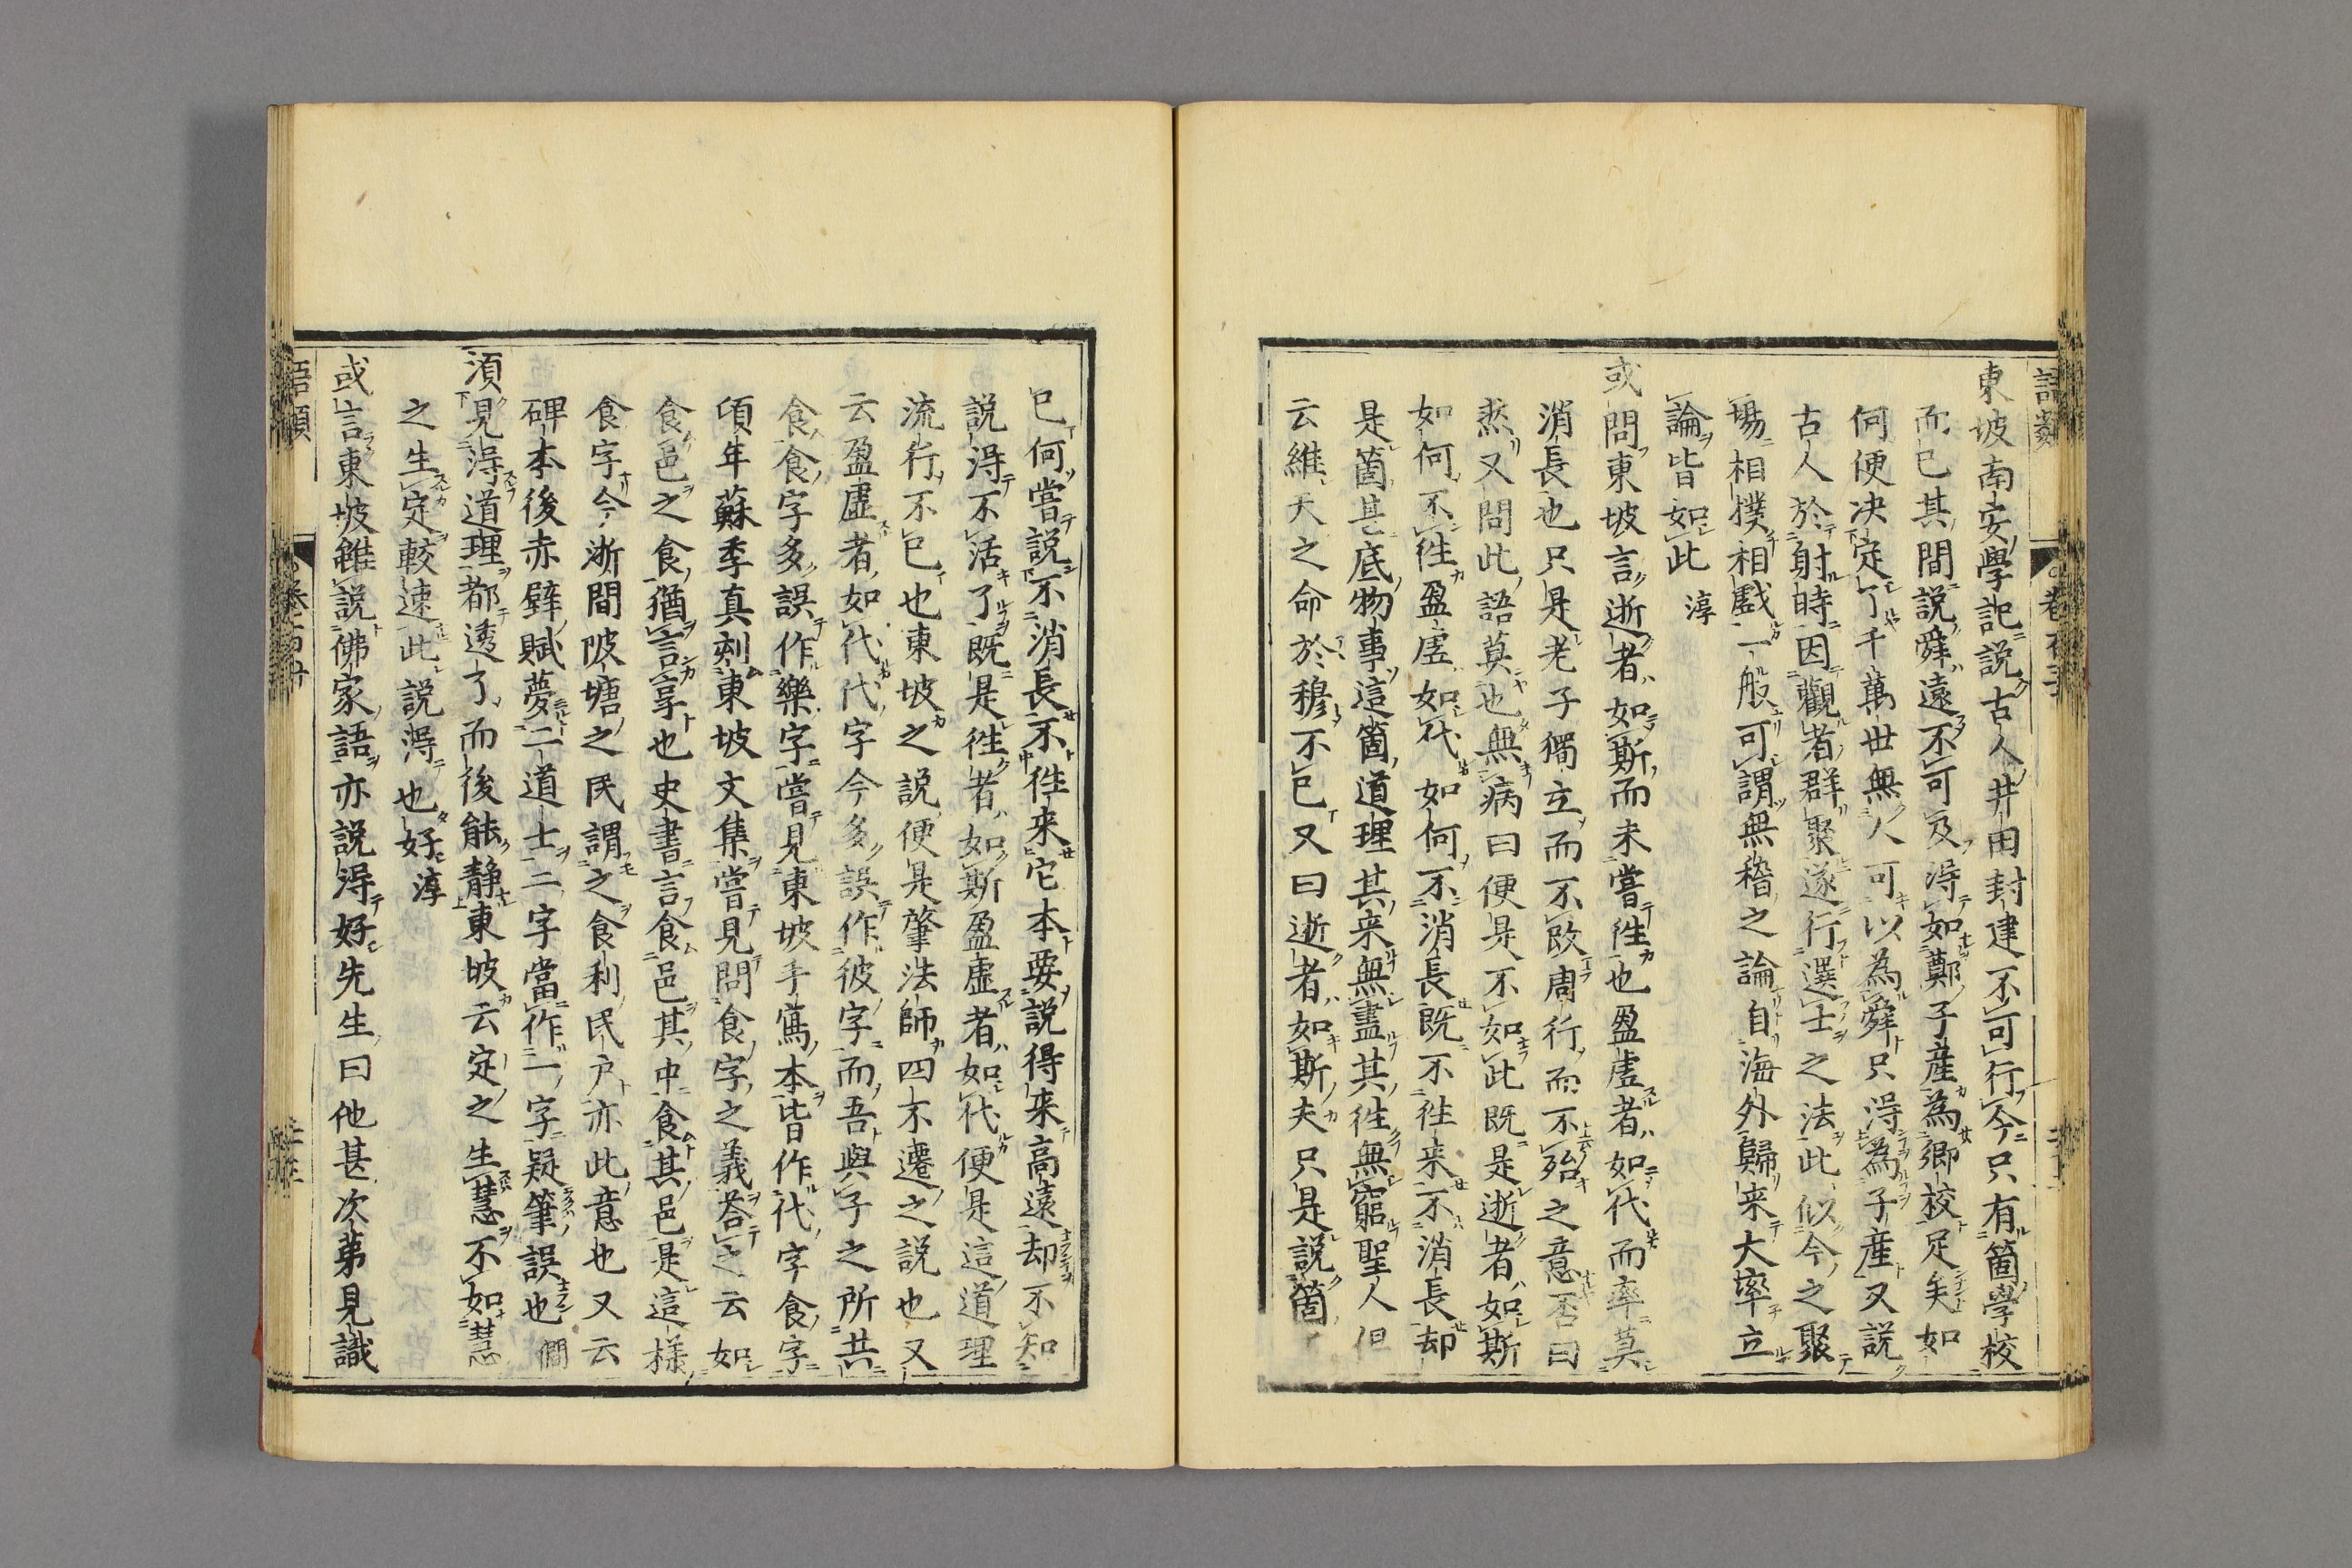 東坡南安學記説古人井田封建不可行今只有箇學校
而已其間説舜遠不可及得如鄭子産為鄕校足矣如
何便决定了千萬世無人可以為舜只得為子産又説
古人於射時因觀者群聚遂行選士之法此似今之聚
場相撲相戲一般可謂無稽之論自海外歸来大率立
論皆如此 淳
或問東坡言逝者如斯而未嘗徃也盈虗者如代而率莫
消長也只是老子獨立而不改周行而不殆之意否曰
然又問此語莫也無病曰便是不如此既是逝者如斯
如何不徃盈虗如代如何不消長既不徃来不消長却
是箇甚底物事這箇道理其来無盡其徃無窮聖人但
云維天之命於穆不已又曰逝者如斯夫只是説箇
已何嘗説不消長不徃来它本要説得来高遠却不知
説得不活了既是徃者如斯盈虚者如代便是這道理
流行不已也東坡之説便是肇法師四不遷之説也又
云盈虚者如代代字今多誤作彼字而吾與子之所共
食食字多誤作樂字嘗見東坡手寫本皆作代字食字
頃年蘇季真刻東坡文集嘗見問食字之義荅之云如
食邑之食猶言享也史書言食邑其中食其邑是這樣
食字今浙間陂塘之民謂之食利民戸亦此意也又云
碑本後赤壁賦夢二道士二字當作一字疑筆誤也 僩
須見得道理都透了而後能静東坡云定之生慧不如慧
之生定較速此説得也好 淳
或言東坡雖説佛家語亦説得好先生曰他甚次第見識